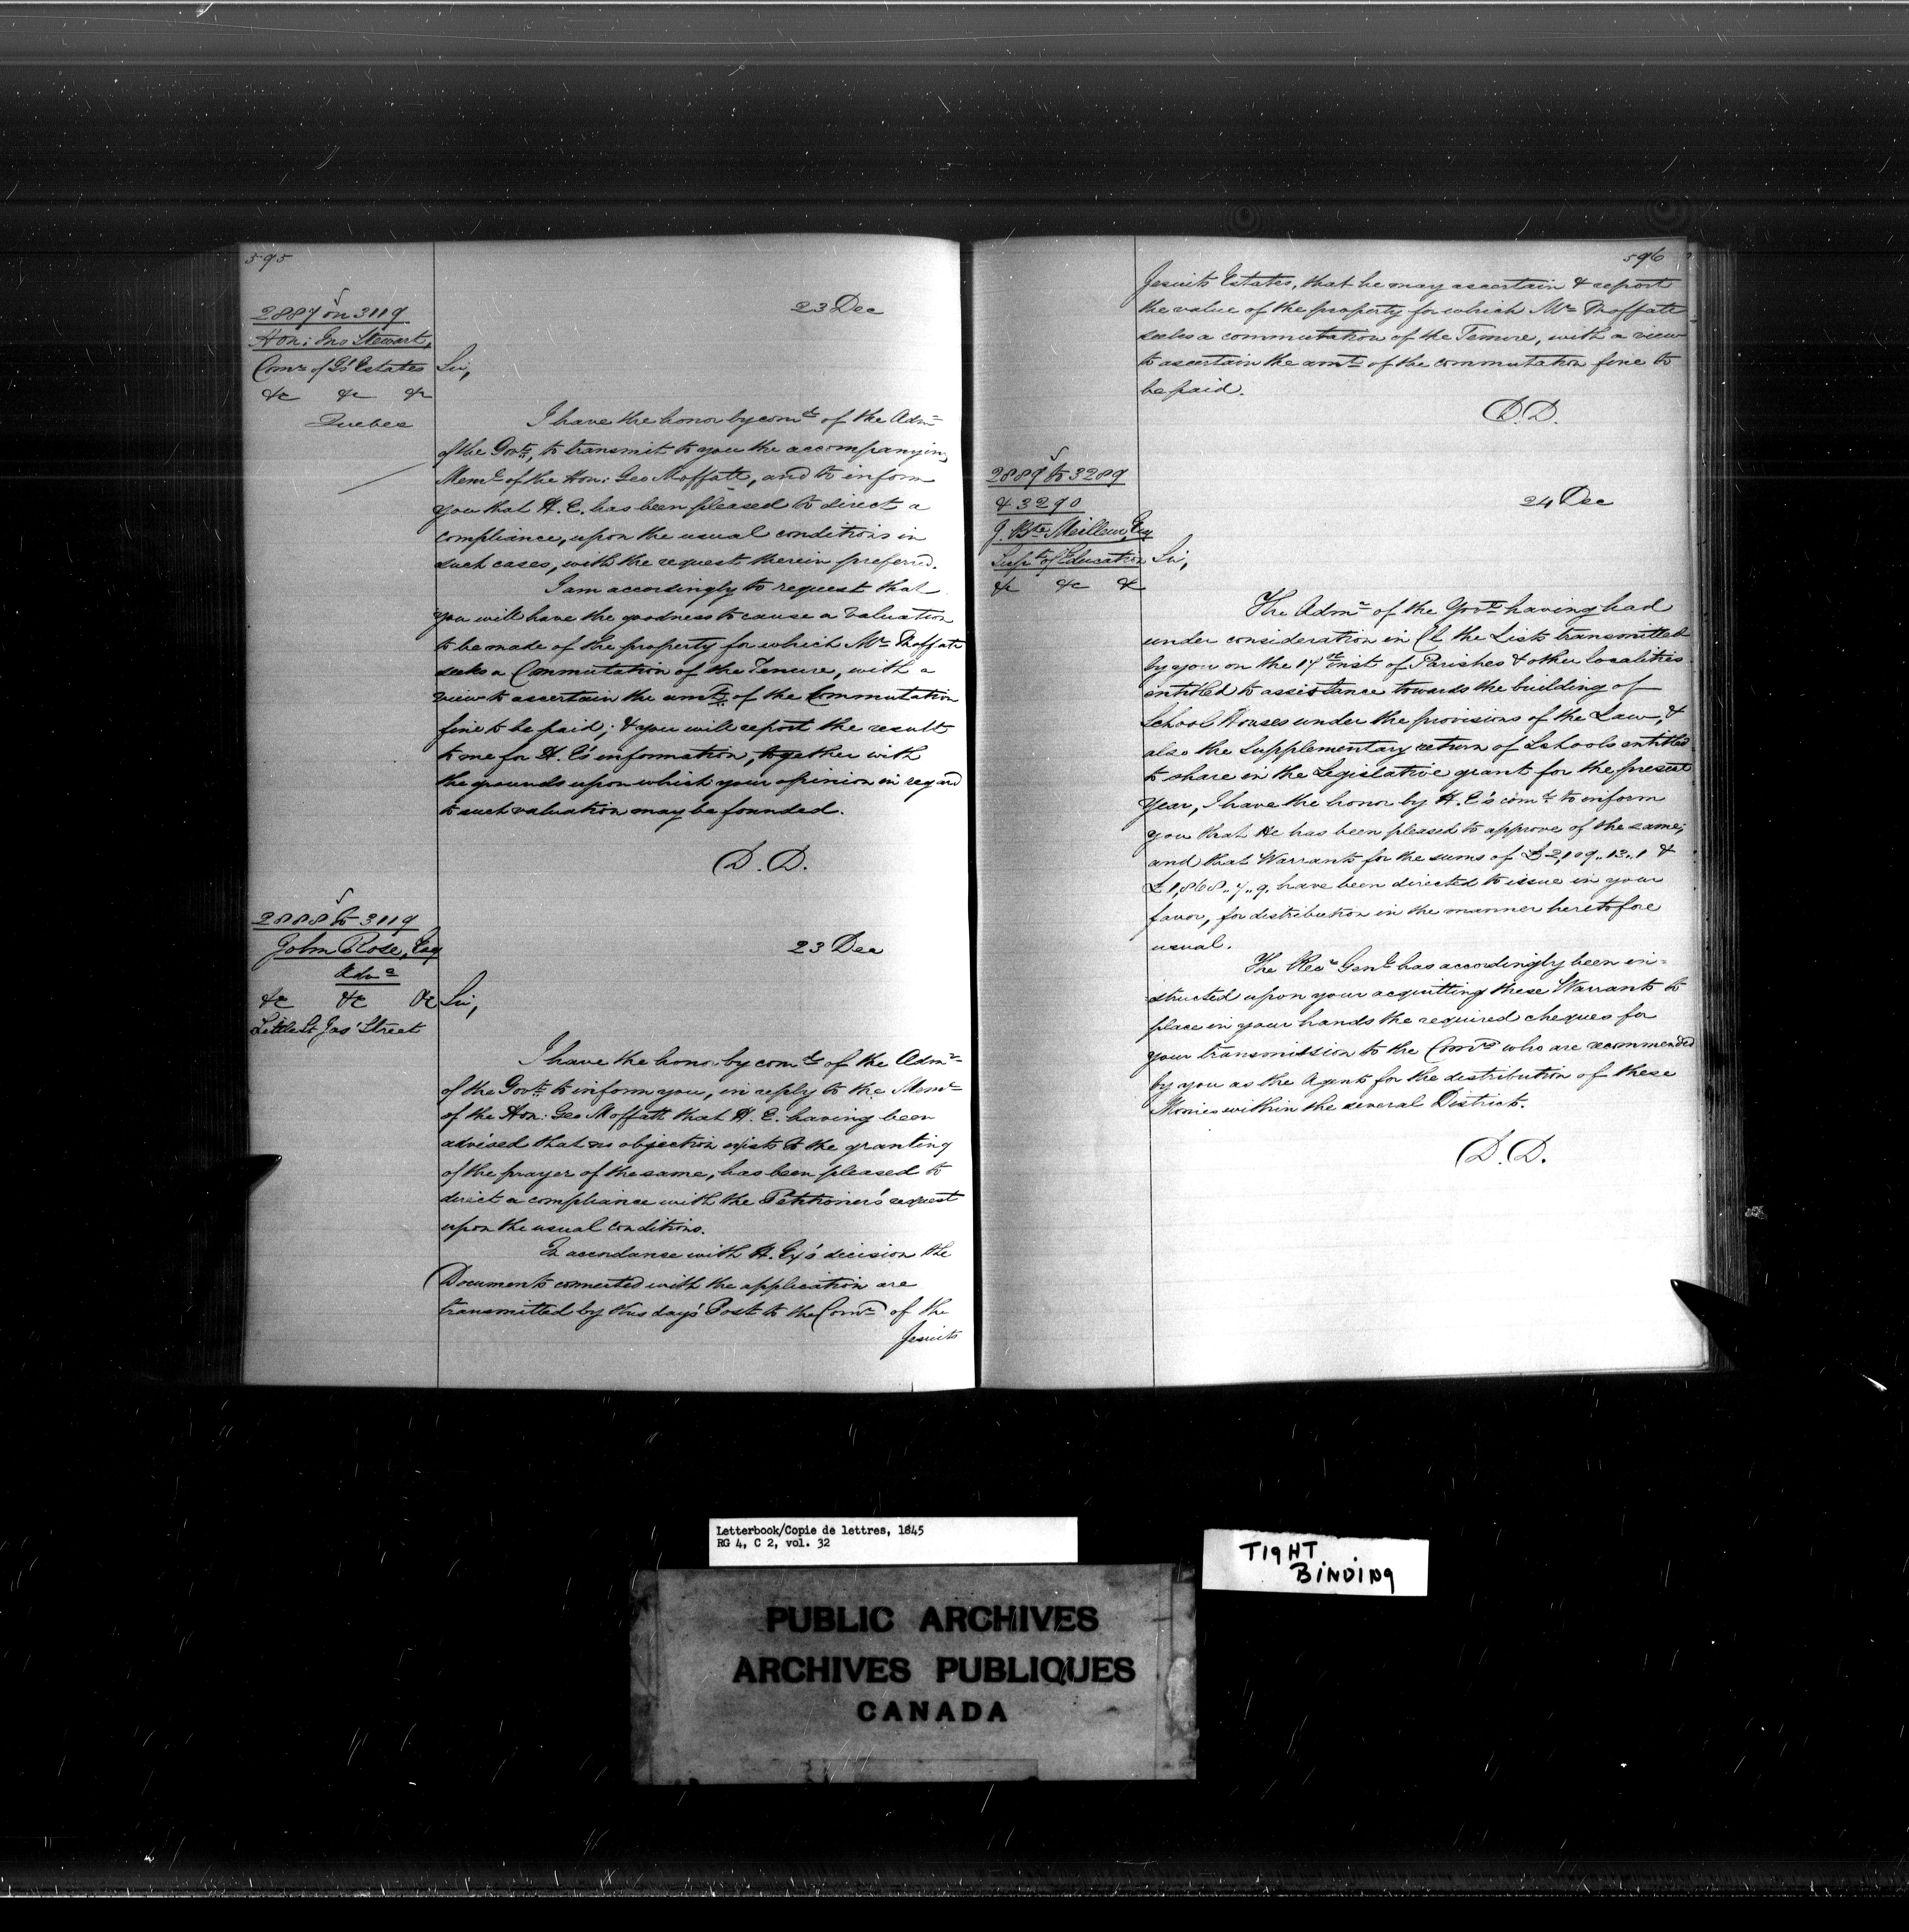 595
2887 on 3119
Hon: Jno Stewart,
Comr of Js' Estates
&c &c &c
Quebec
23 Dec
Sir,
I have the honor by comd of the Admr
of the Govt, to transmit to you the accompanying
Meml of the Hon: Geo Moffatt, and to inform
you that H. E. has been pleased to direct a
compliance, upon the usual conditions in
such cases, with the request therein preferred.
I am accordingly to request that
you will have the goodness to cause a valuation
to be made of the property for which Mr Moffatt
seeks a Commutation of the Tenure, with a
view to ascertain the amt of the Commutation
fine to be paid; & you will report the result
to me for H. E's information, together with
the grounds upon which your opinion in regard
to such valuation may be founded.
D. D.
2888 to 3119
John Rose, Esq
Adve
&c &c &c
Little St Jas' Street
23 Dec
Sir,
I have the honor by comd of the Admr
of the Govt to inform you, in reply to the Meml
of the Hon: Geo Moffatt that H. E. having been
advised that no objection exists to the granting
of the prayer of the same, has been pleased to
direct a compliance with the Petitioner's request
upon the usual conditions.
In accordance with H. Ex's decision the
Documents connected with the application are
transmitted by this day's Post to the Comr of the
Jesuits
596
Jesuits Estates, that he may ascertain & report
the value of the property for which Mr Moffatt
seeks a commutation of the Tenure, with a view
to ascertain the amt of the commutation fine to
be paid.
D. D.
2889 to 3289
& 3290
J. Bte Meilleur, Esq
Supt of Education
&c &c &c
24 Dec
Sir,
The Admr of the Govt having had
under consideration in Cl the Lists transmitted
by you on the 17th inst of Parishes & other localities
entitled to assistance towards the building of
School Houses under the provisions of the Law, &
also the Supplementary return of Schools entitled
to share in the Legislative grant for the present
Year, I have the honor by H. E's comd to inform
you that He has been pleased to approve of the same;
and that Warrants for the sums of £2,109..13..1 &
£1,868..7..9. have been directed to issue in your
favor, for distribution in the manner heretofore
usual.
The Recr Genl has accordingly been in=
structed upon your acquitting these Warrants to
place in your hands the required cheques for
your transmission to the Comrs who are recommended
by you as the Agents for the distribution of these
Monies within the several Districts.
D. D.
Letterbook/Copie de lettres, 1845
RG 4, C 2, vol. 32
TIGHT
BINDING
PUBLIC ARCHIVES
ARCHIVES PUBLIQUES
CANADA